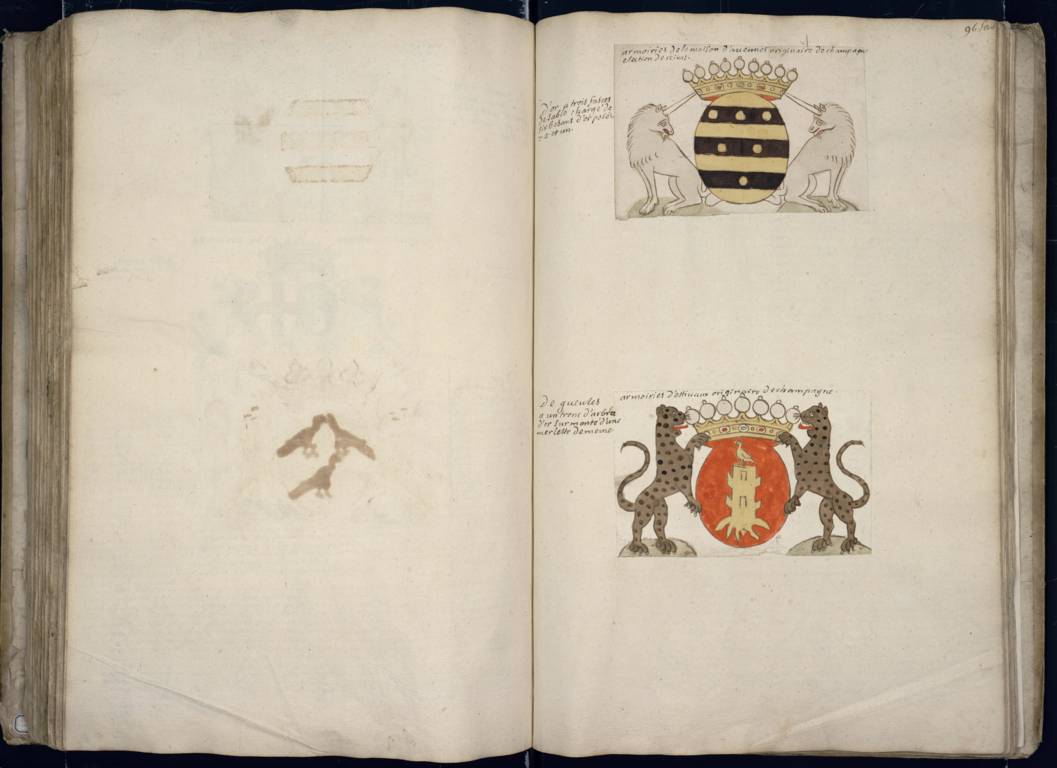 96
armoiries de la maison d'auennes originaire de champagne
election de reims.
D'or a trois fasces
de sable chargé de
six besans d'or posés
3 2 et un.
armoiries d'estiuaux originaire de champagne.
De gueules
a un tronc d'arbre
d'or surmonté d'une
merlette de meme